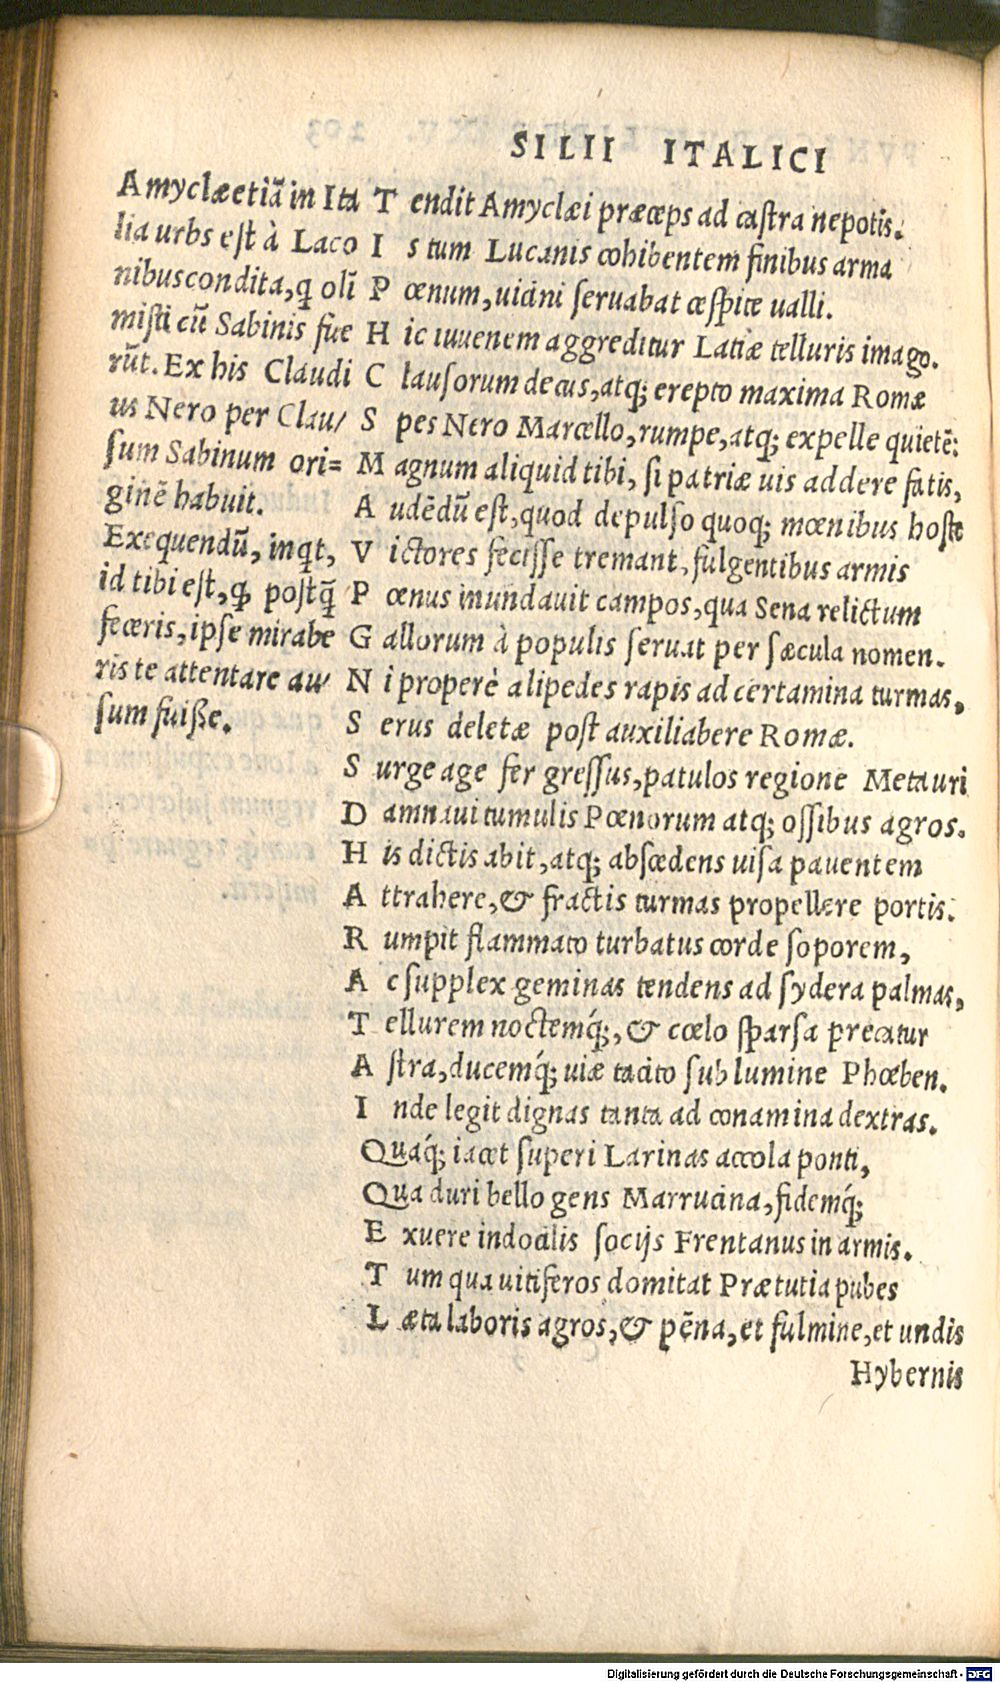 SILII ITALICI
Amyclæ etiã in Ita
lia urbs est à Laco
nibus condita, q̃ olĩ
misti cũ Sabinis fue
rũt. Ex his Claudi
us Nero per Clau/
sum Sabinum ori=
ginẽ habuit.
Exequendũ, inqt,
id tibi est, qđ postq̃
feceris, ipse mirabe
ris te attentare au/
sum fuisse.
Tendit Amyclæi præceps ad castra nepotis.
Is tum Lucanis cohibentem finibus arma
Pœnum, uicini seruabat cespite ualli.
Hic iuuenem aggreditur Latiæ telluris imago.
Clausorum decus, atq; erepto maxima Romæ
Spes Nero Marcello, rumpe, atq; expelle quietẽ:
Magnum aliquid tibi, si patriæ uis addere fatis,
Audẽdũ est, quod depulso quoq; mœnibus hoste
Victores fecisse tremant, fulgentibus armis
Pœnus inundauit campos, qua Sena relictum
Gallorum à populis seruat per sæcula nomen.
Ni properè alipedes rapis ad certamina turmas,
Serus deletæ post auxiliabere Romæ.
Surge age fer gressus, patulos regione Metauri
Damnaui tumulis Pœnorum atq; ossibus agros.
His dictis abit, atq; abscedens uisa pauentem
Attrahere, & fractis turmas propellere portis.
Rumpit flammato turbatus corde soporem,
Ac supplex geminas tendens ad sydera palmas,
Tellurem noctemq́;, & cœlo sparsa precatur
Astra, ducemq́; uiæ tacito sub lumine Phœben.
Inde legit dignas tanta ad conamina dextras.
Quaq́; iacet superi Larinas accola ponti,
Qua duri bello gens Marrucina, fidemq́;
Exuere indocilis socijs Frentanus in armis.
Tum qua uitiferos domitat Prætutia pubes
Læta laboris agros, & pẽna, et fulmine, et undis
Hybernis
Digitalisierung gefördert durch die Deutsche Forschungsgemeinschaft - DFG